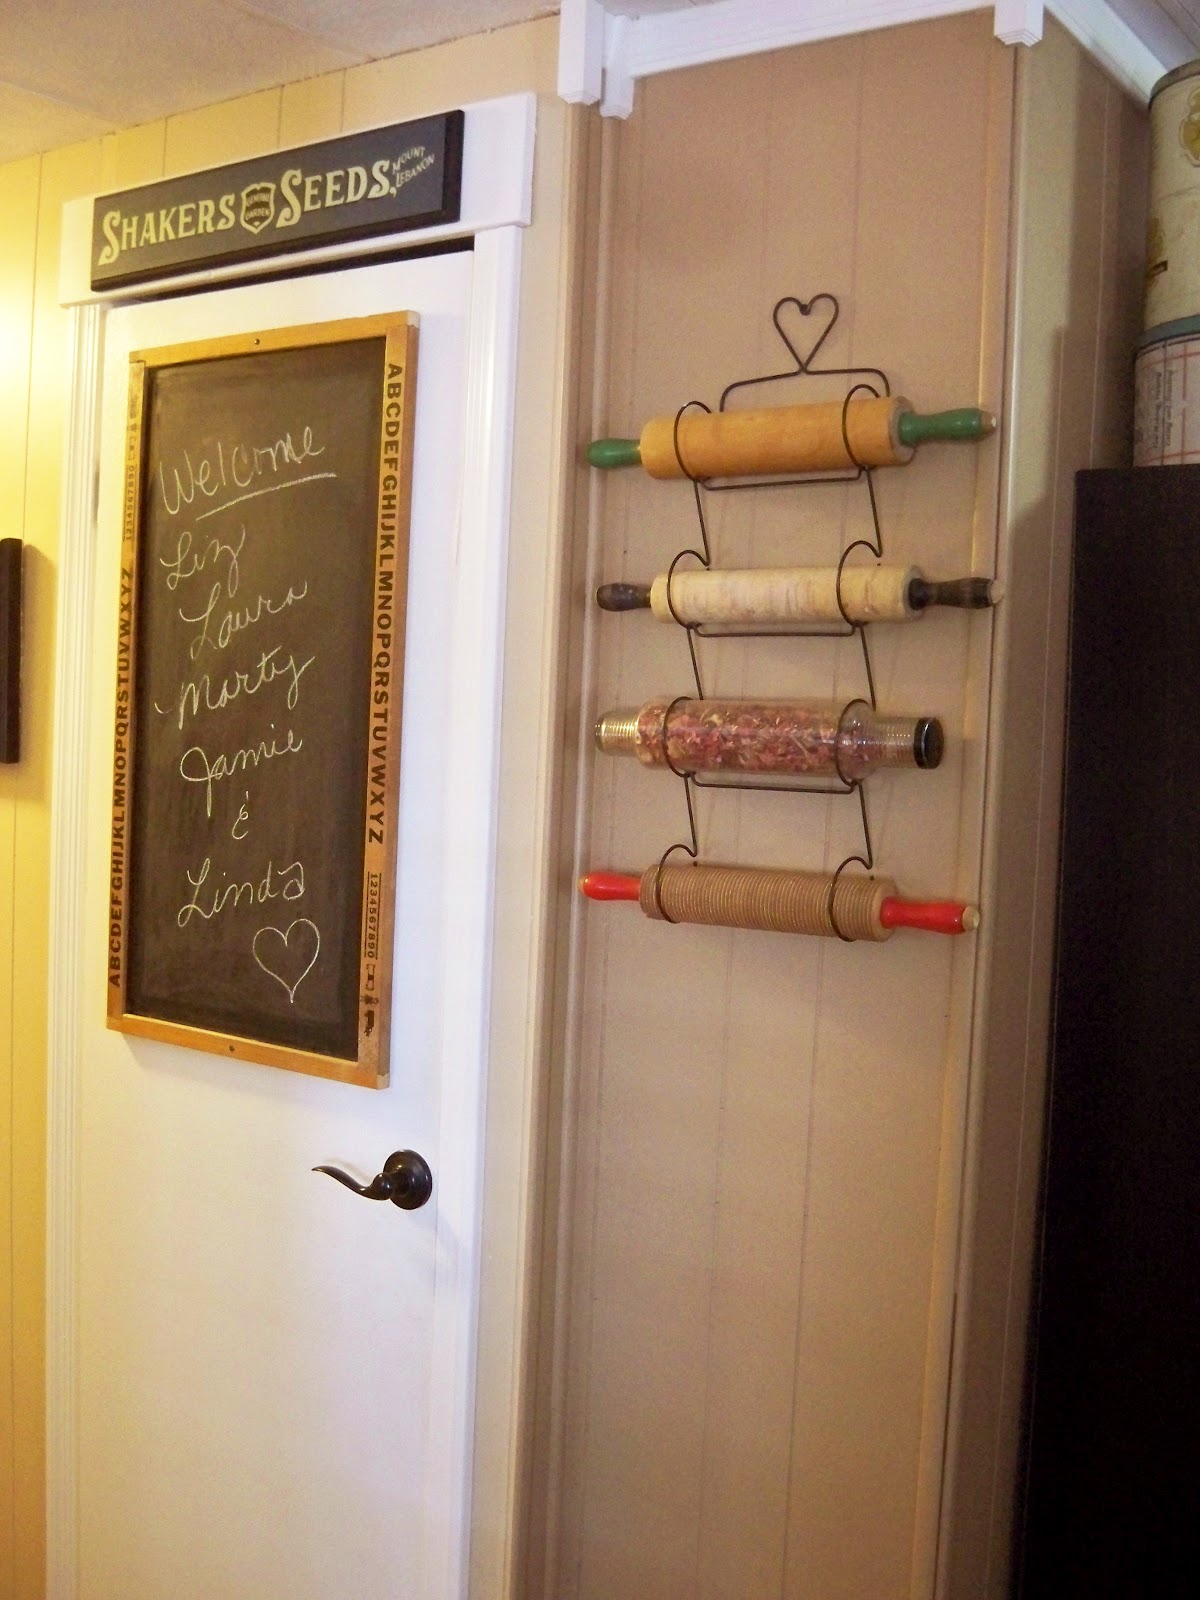 SHAKERS GENUINE GARDEN SEEDS, MOUNT LEBANON
Welcome
Liz
Laura
Marty
Jamie
&
Linda
ABCDEFGHIJKLMNOPQRSTUVWXYZ
1234567890
ABCDEFGHIJKLMNOPQRSTUVWXYZ
1234567890